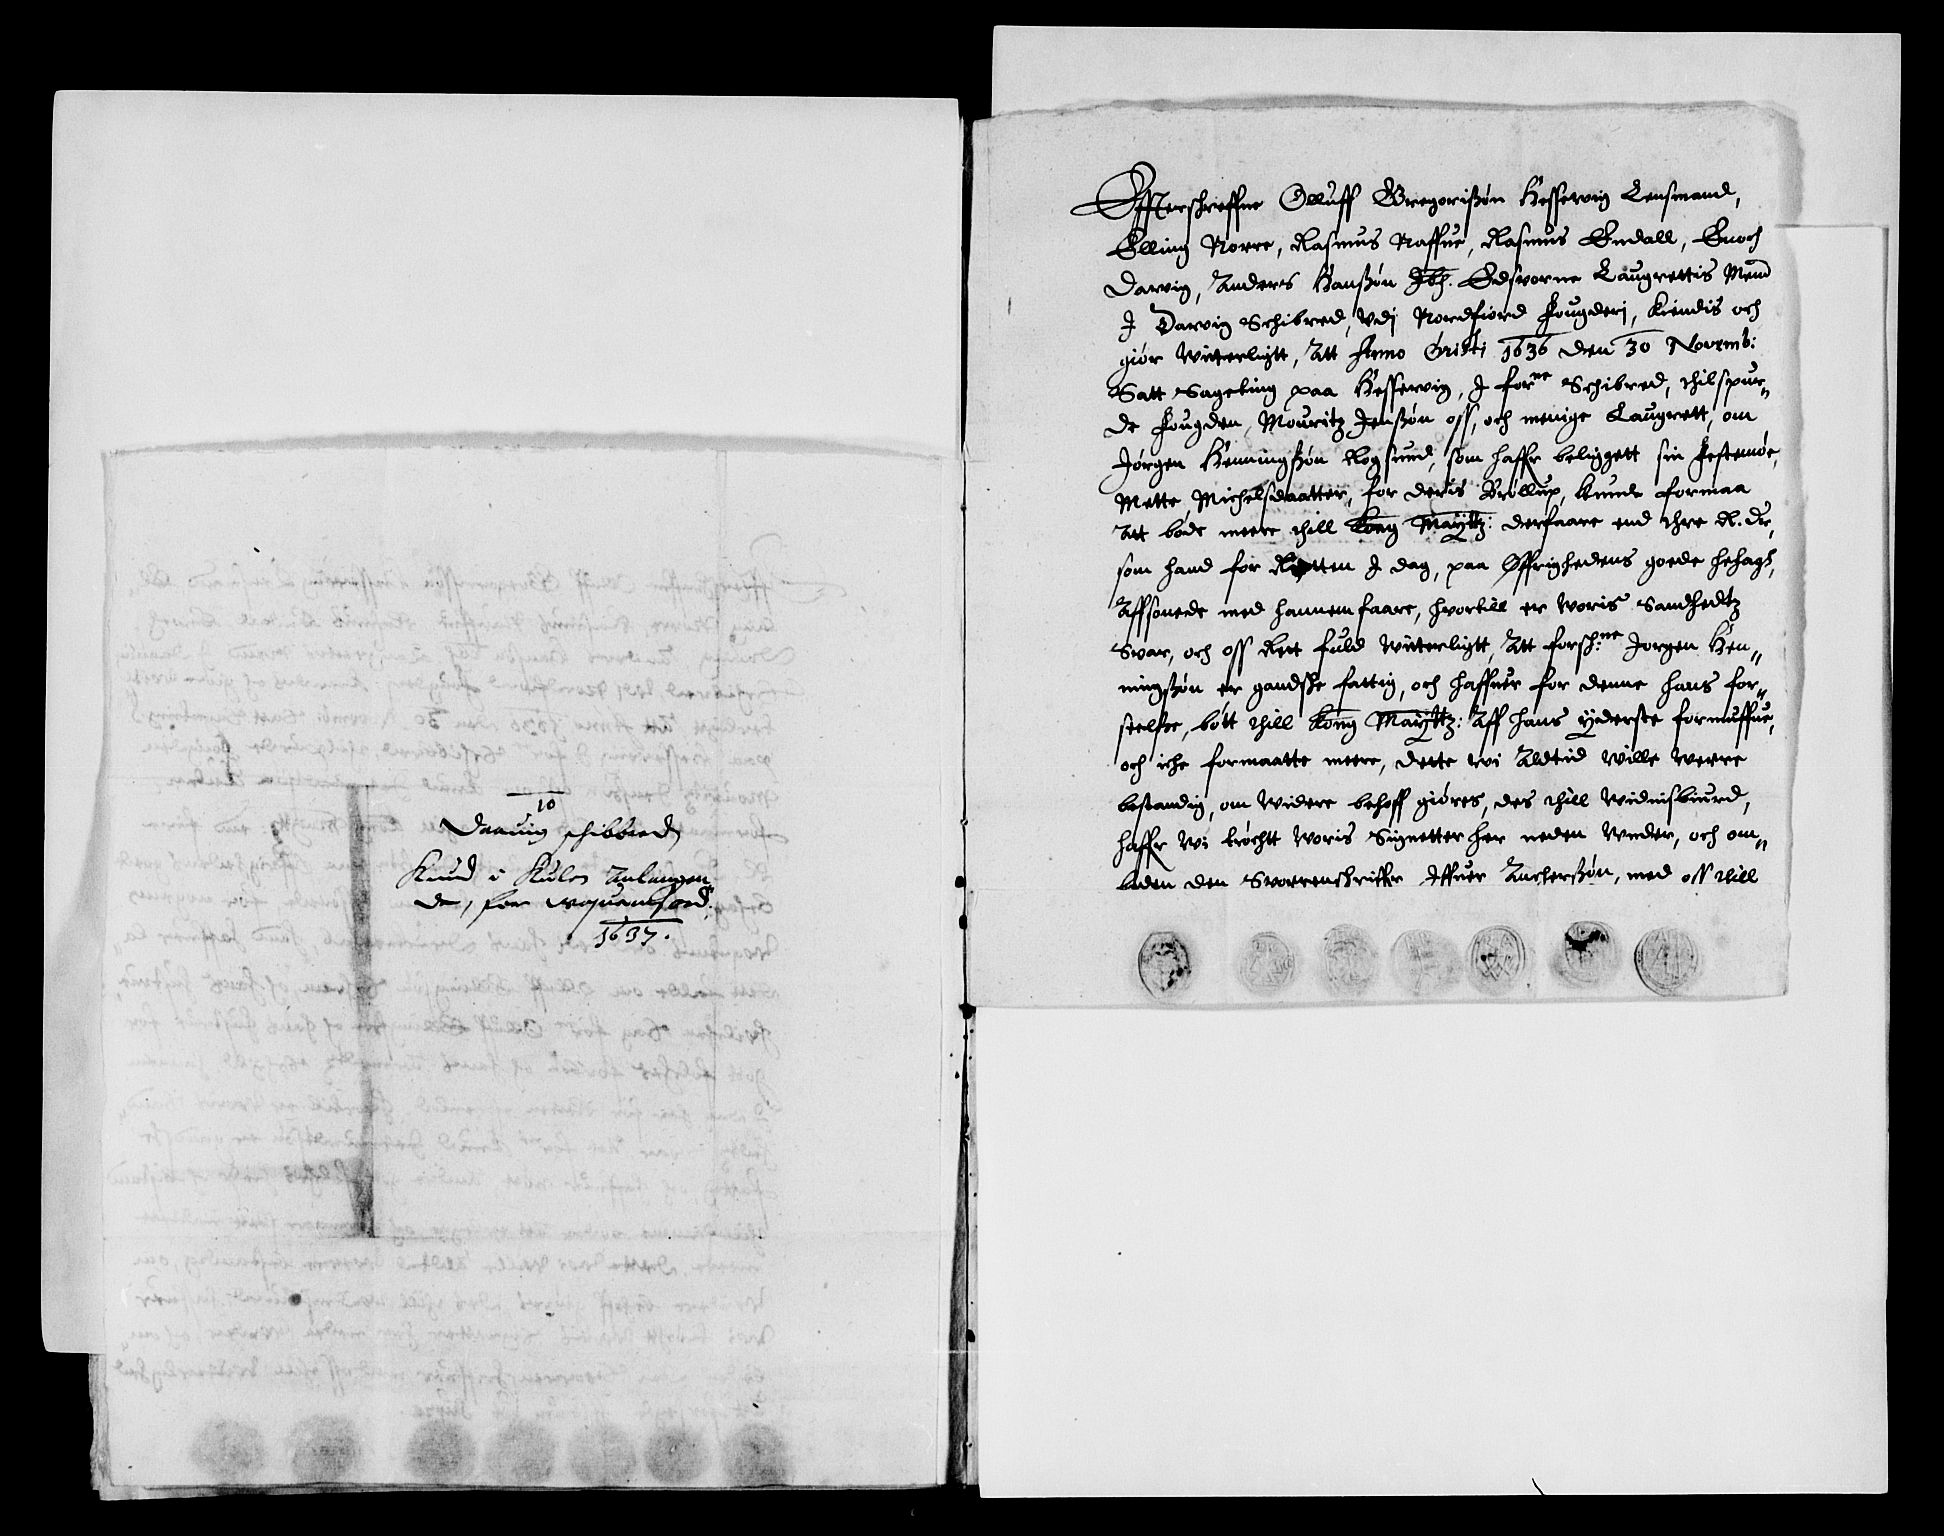 10
Daauig schibbred
Knud i Kulen anlangen
de, for
1637.
Effterschreffne Olluff Gregorissøn Hessevig Lensmand,
Elling Norre, Rasmus Raffne, Rasmus Endall, Enoch
Darvig, Anders Hanssøn Ibh. Edsvorne Laugrettis Mend
J Darvig Schibred, Vdj Nordfiord Fougderj, Kiendis och
giør witterligtt, Att Anno Cristi 1636 den 30 Novemb:
Satt Sageting paa Hessevig, J forne Schibred, thilspur„
de Fougden Mouritz Jenssøn oss, och menige Laugrett, om
Jørgen Henningssøn Rogsund, som haffr beliggett sin Festemøe,
Mette Michelsdaatter, for deris Brøllup, kunde formaa
Att bøde meere thill Kong Maÿttz: derfaare end thre R. dr,
som hand for Retten J dag, paa Øffrighedens goede behagh,
Affsonede med hannem faare, hvortill er Woris Sandhedtz
Svar, och oss Rett fuld Witterligtt, Att forsch:ne Jorgen Hen„
ningssøn er gandske fattig, och haffuer for denne hans for„
seelse, bøtt thill Kong Maÿttz: Aff hans ÿderste formuffue,
och iche formaatte meere, dette wi Aldtid Wille Werre
bestandig, om Widere behoff giøres, des thill Widnisbiurd,
haffr Wi trøchtt Woris Signetter her neden Wnder, och om„
beden den Svorrenschriffr Iffuer Ancherssøn, med oss thill